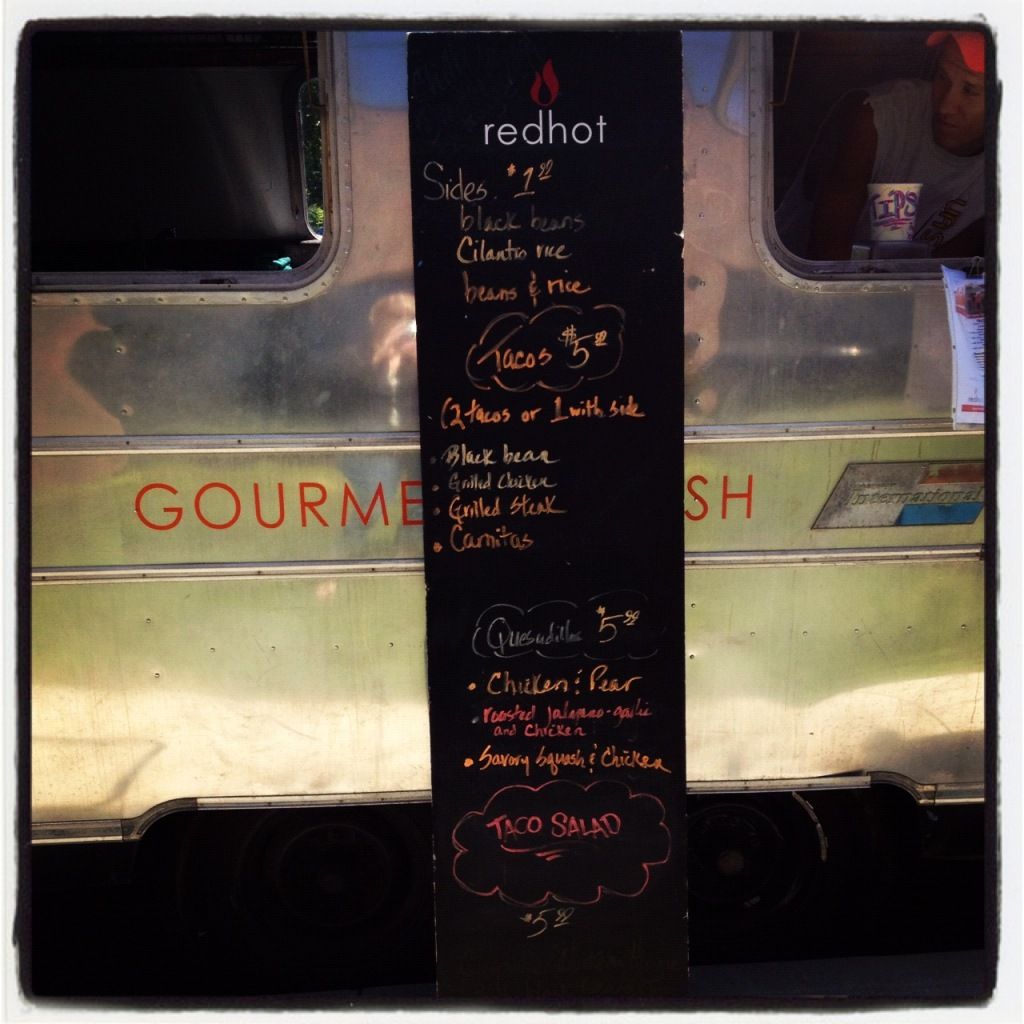 redhot
Sides $1.00
black beans
Cilantro rice
beans & rice
Tacos $5.00
(2 tacos or 1 with side
• Black bean
• Grilled Chicken
• Grilled Steak
• Carnitas
Quesadillas $5.00
• Chicken & Pear
• roasted jalapeno-garlic
and Chicken
• Savory Squash & Chicken
TACO SALAD
$5.00
GOURME
SH
International
TIPS